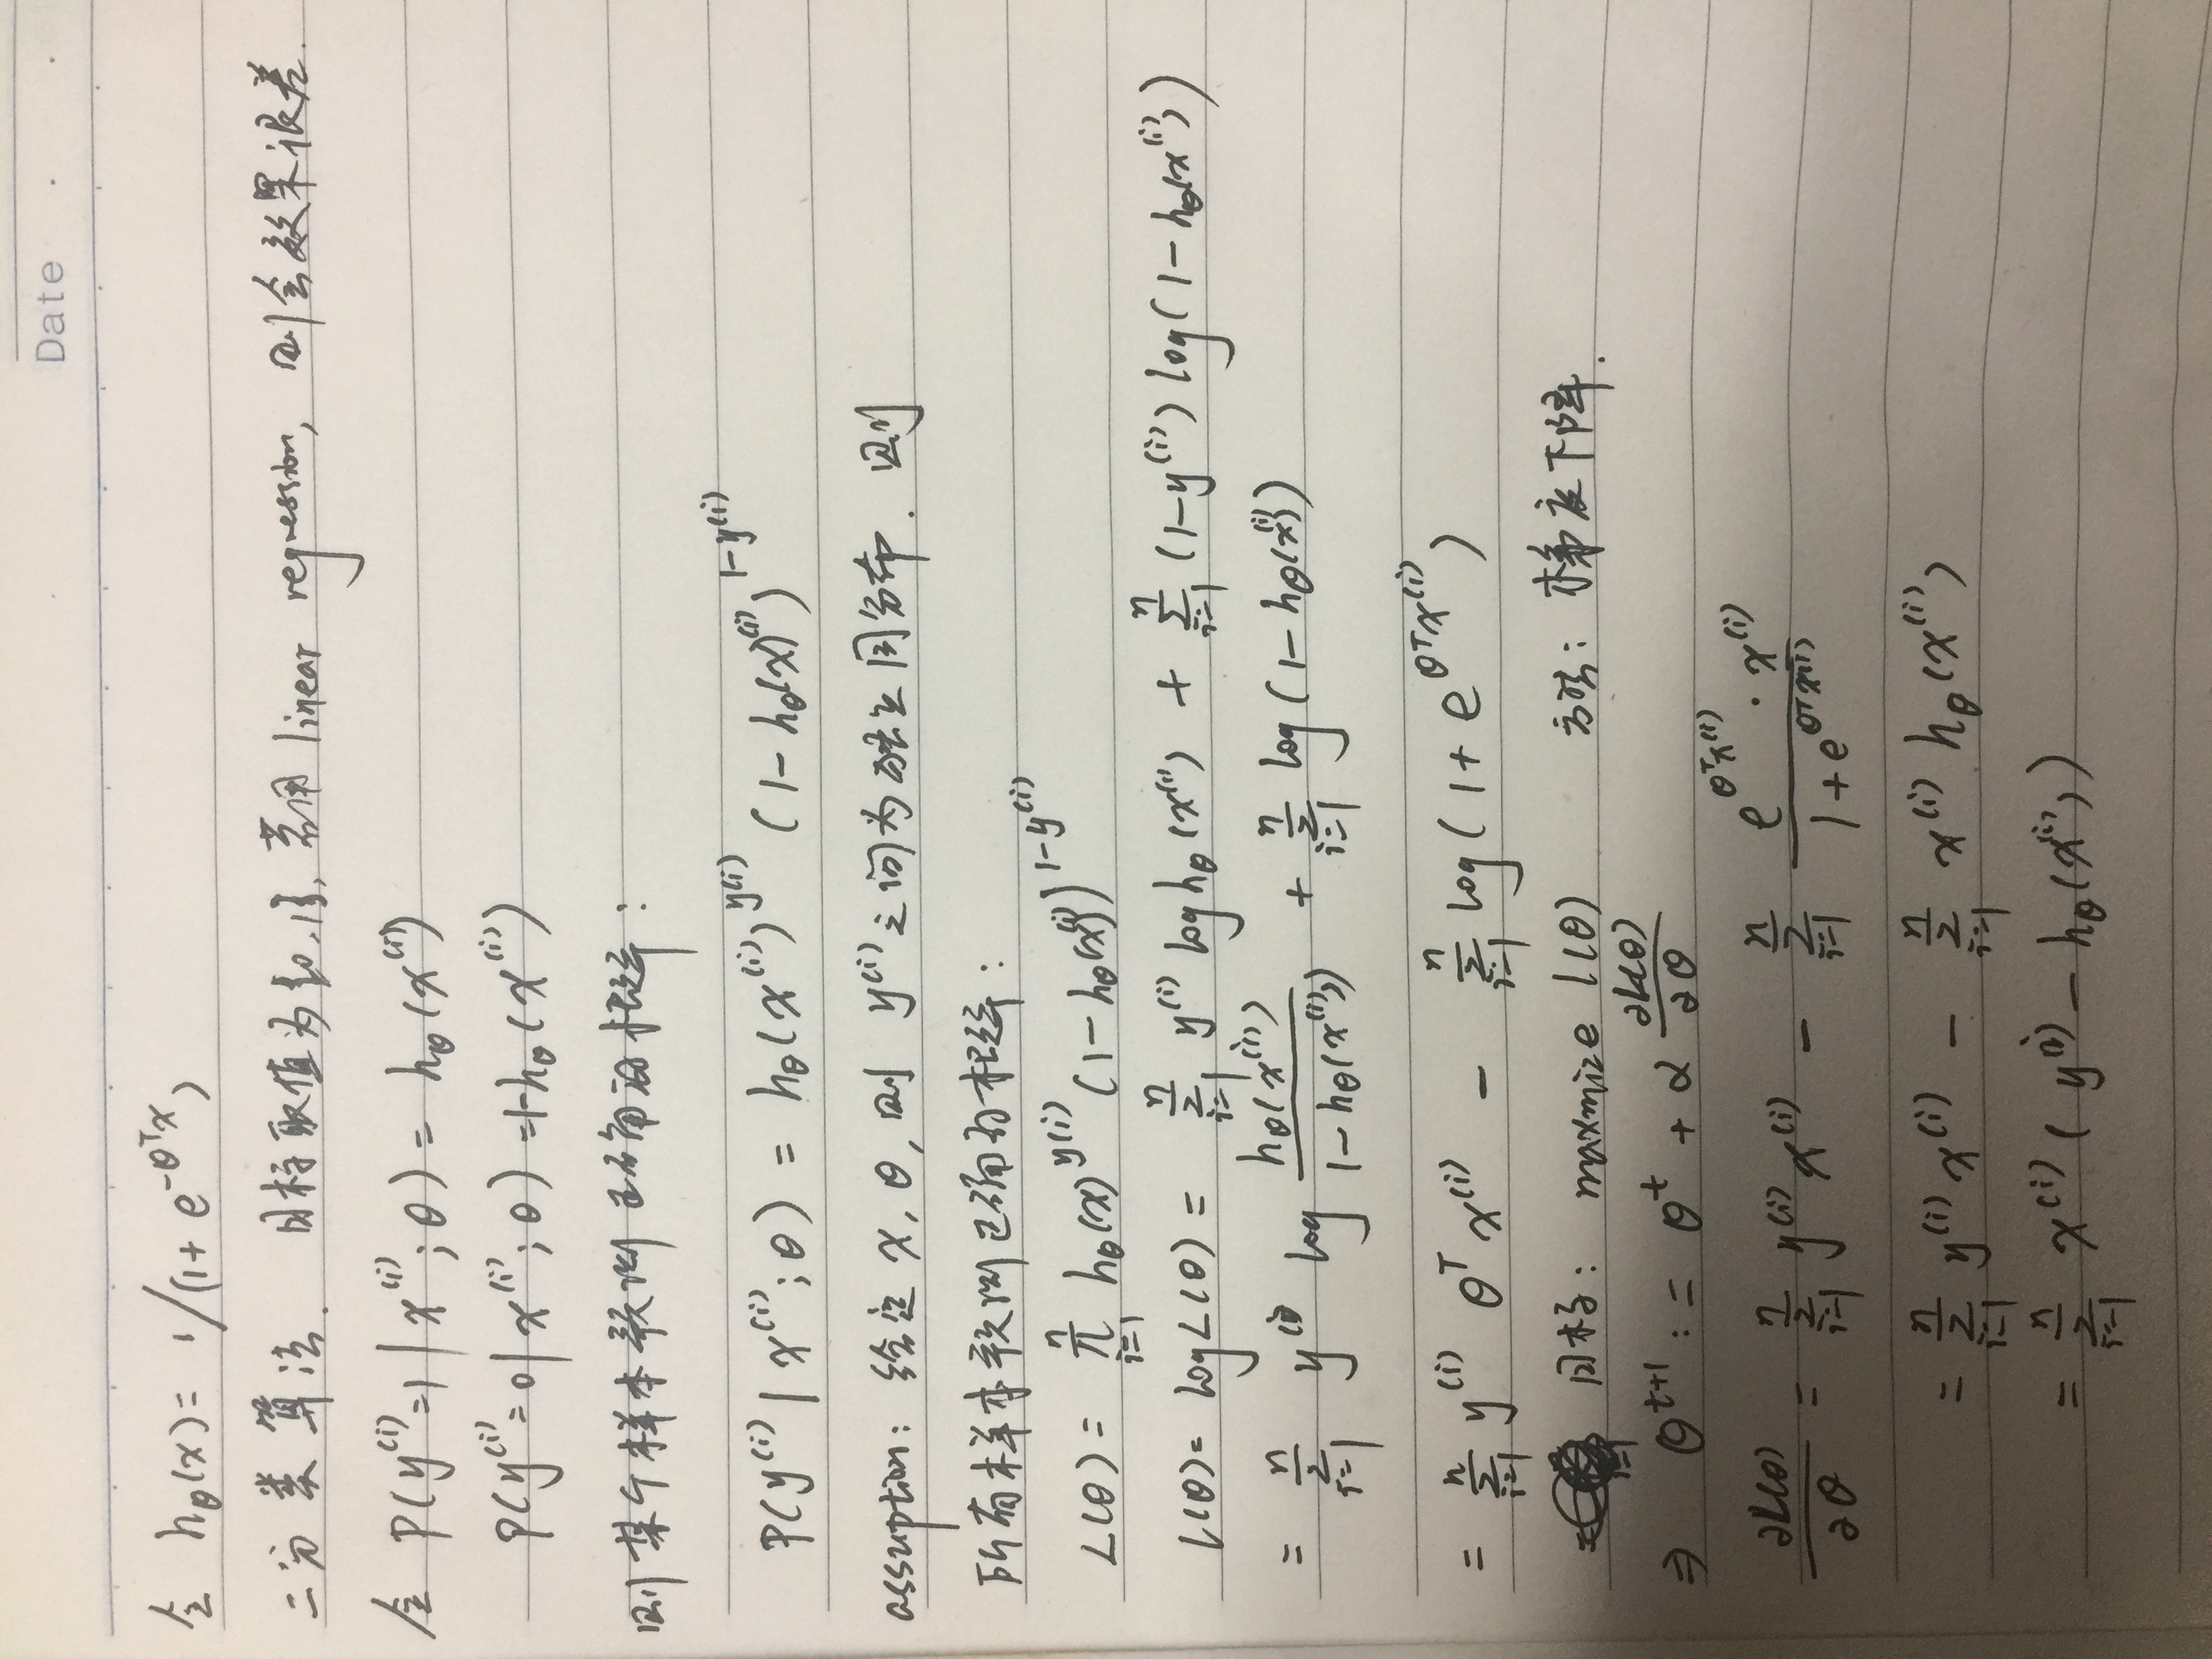 Date
令 hθ(x) = 1/(1+ e^{-θ^T x})
二分类算法. 目标取值为{0,1}, 若用 linear regression, 则会效果很差.
令 P(y^{(i)}=1 | x^{(i)}; θ) = hθ(x^{(i)})
P(y^{(i)}=0 | x^{(i)}; θ) = 1-hθ(x^{(i)})
则某个样本预测正确的概率:
P(y^{(i)} | x^{(i)}; θ) = hθ(x^{(i)})^{y^{(i)}} (1-hθ(x)^{(i)})^{1-y^{(i)}}
assuption: 给定 x, θ, 则 y^{(i)}之间为独立同分布. 则
所有样本预测正确的概率:
L(θ) = ∏_{i=1}^{n} hθ(x)^{y^{(i)}} (1-hθ(x^{(i)}))^{1-y^{(i)}}
l(θ) = log L(θ) = ∑_{i=1}^{n} y^{(i)} log hθ(x^{(i)}) + ∑_{i=1}^{n} (1-y^{(i)}) log(1-hθ(x^{(i)}))
= ∑_{i=1}^{n} y^{(i)} log \frac{hθ(x^{(i)})}{1-hθ(x^{(i)})} + ∑_{i=1}^{n} log(1-hθ(x^{(i)}))
= ∑_{i=1}^{n} y^{(i)} θ^T x^{(i)} - ∑_{i=1}^{n} log(1+ e^{θ^T x^{(i)}})
目标: maxmize l(θ) 方法: 梯度下降.
⇒ θ^{t+1} := θ^t + α \frac{∂L(θ)}{∂θ}
\frac{∂L(θ)}{∂θ} = ∑_{i=1}^{n} y^{(i)} x^{(i)} - ∑_{i=1}^{n} \frac{e^{θ^T x^{(i)}} · x^{(i)}}{1+e^{θ^T x^{(i)}}}
= ∑_{i=1}^{n} y^{(i)} x^{(i)} - ∑_{i=1}^{n} x^{(i)} hθ(x^{(i)})
= ∑_{i=1}^{n} x^{(i)} ( y^{(i)} - hθ(x^{(i)}))